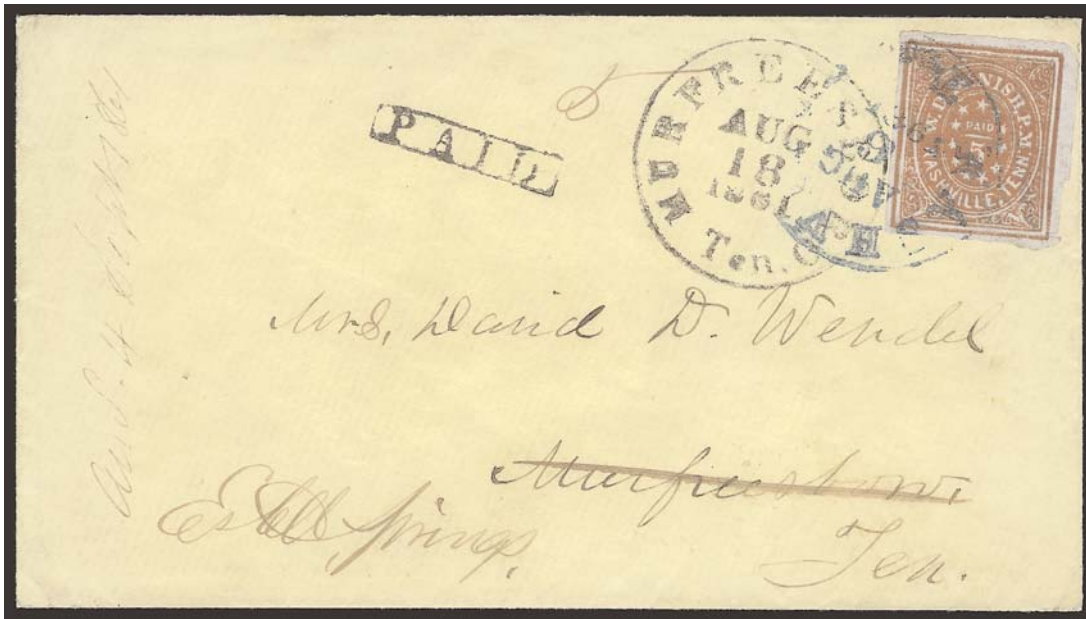 5
PAID
MURFREESBORO
AUG
18
1861
Ten.
W.D. M'NISH. P.M.
PAID
5
NASHVILLE, TENN.
Mrs. David D. Wendel
Murfreesboro,
Estell Springs,
Ten.